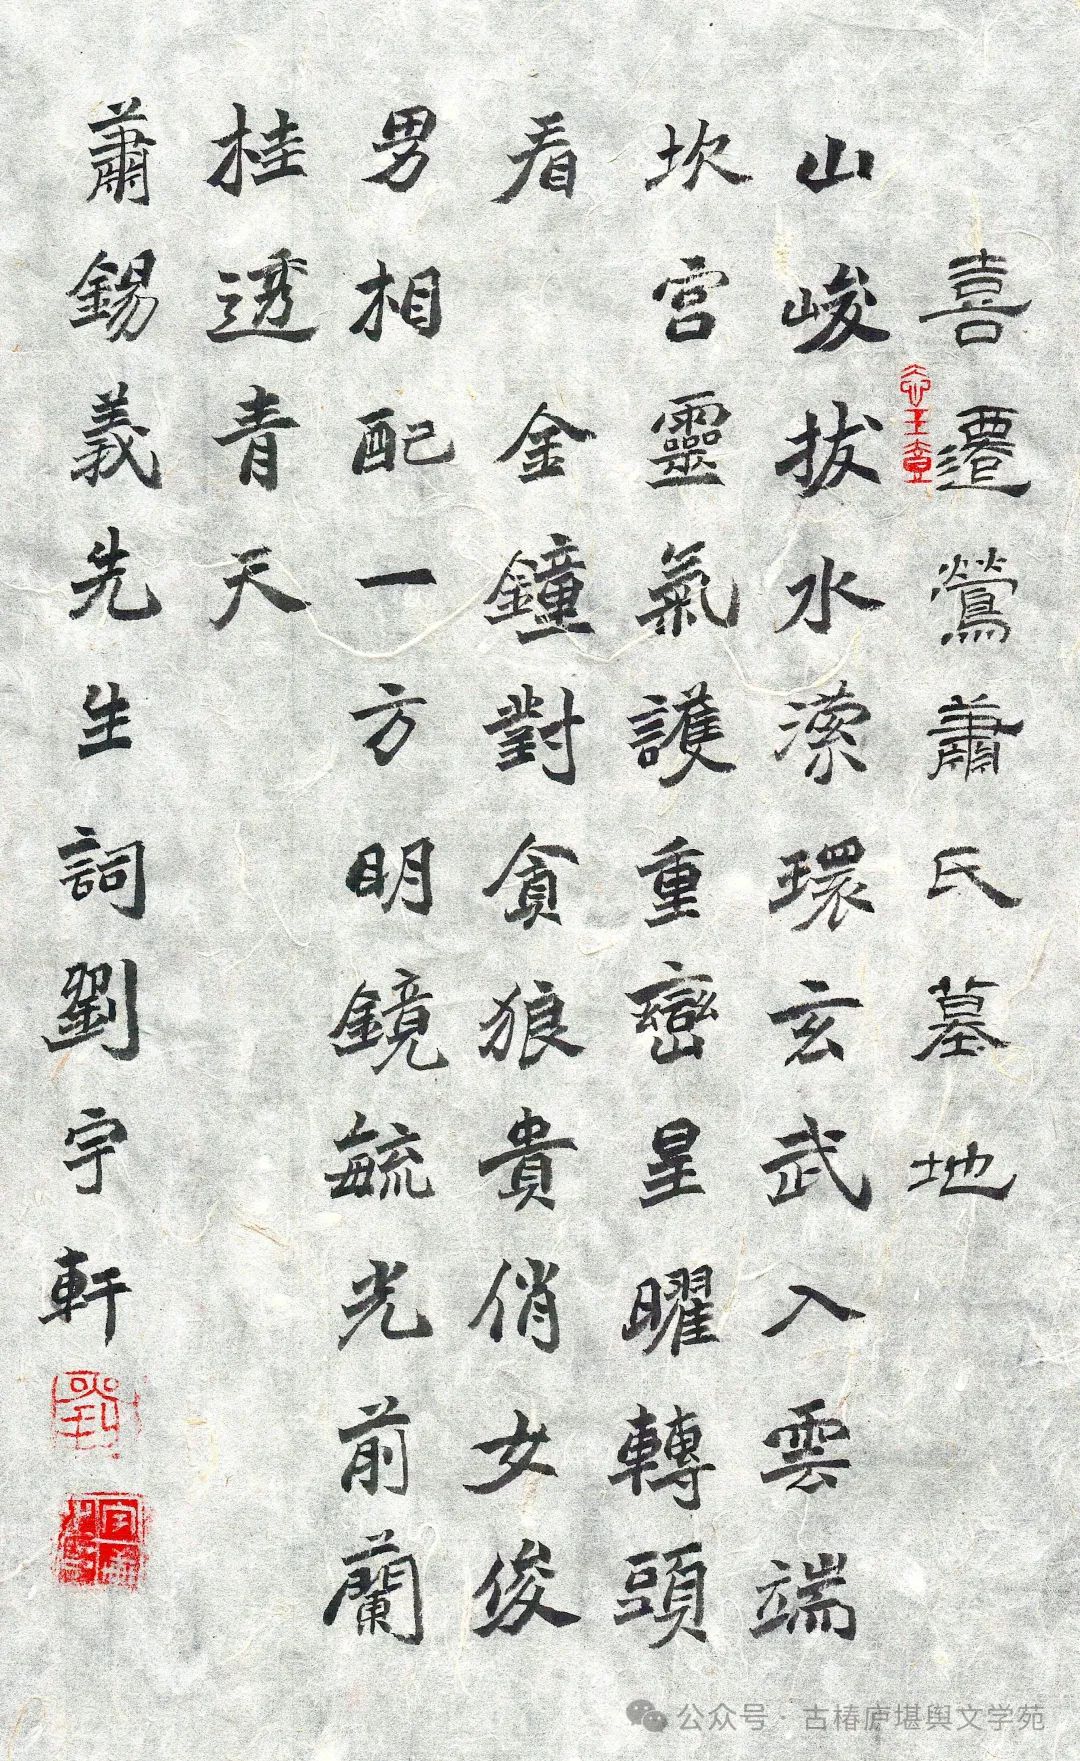 喜遷鶯蕭氏墓地
山峻拔水瀠環玄武入雲端
坎宮靈氣護重巒星曜轉頭
看 金鐘對貪狼貴俏女俊
男相配一方明鏡毓光前蘭
桂透青天
蕭錫義先生詞劉宇軒
公众号·古椿庐堪舆文学苑